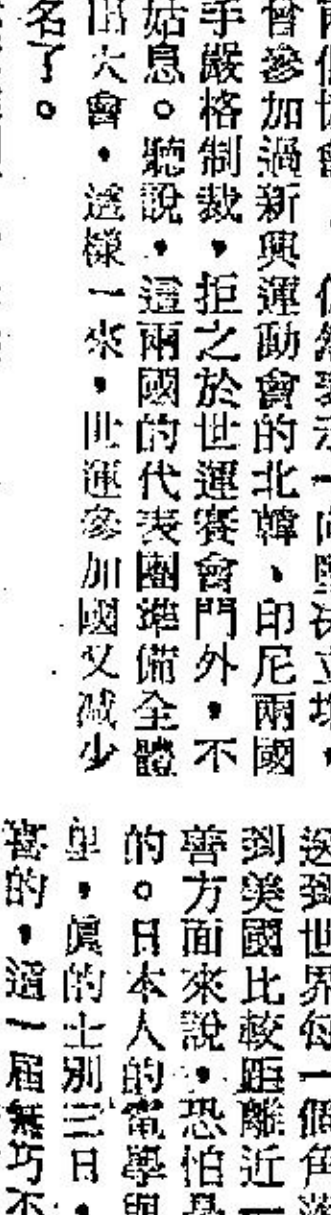 仍然表示一向堅決立場，
會參加過新興運動會的北韓、印尼兩國
手嚴格制裁，拒之於世運賽會門外，不
姑息。聽說，這兩國的代表團準備全體
出大會，這樣一來，世運參加國又減少
名了。
送到世界每一個角落
到美國比較距離近一
善方面來說，恐怕是
的。日本人的電學與
真的士別三日，
的，這一屆無巧不